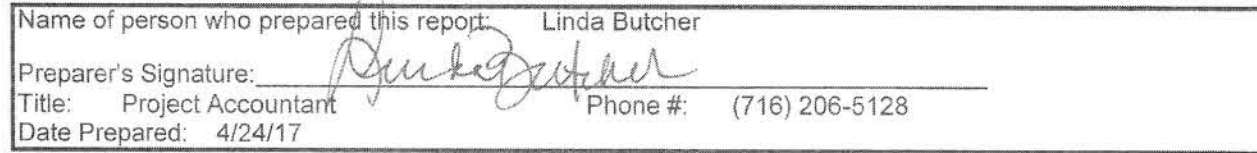 Name of person who prepared this report: Linda Butcher
Preparer's Signature: Linda Butcher
Title: Project Accountant Phone #: (716) 206-5128
Date Prepared: 4/24/17